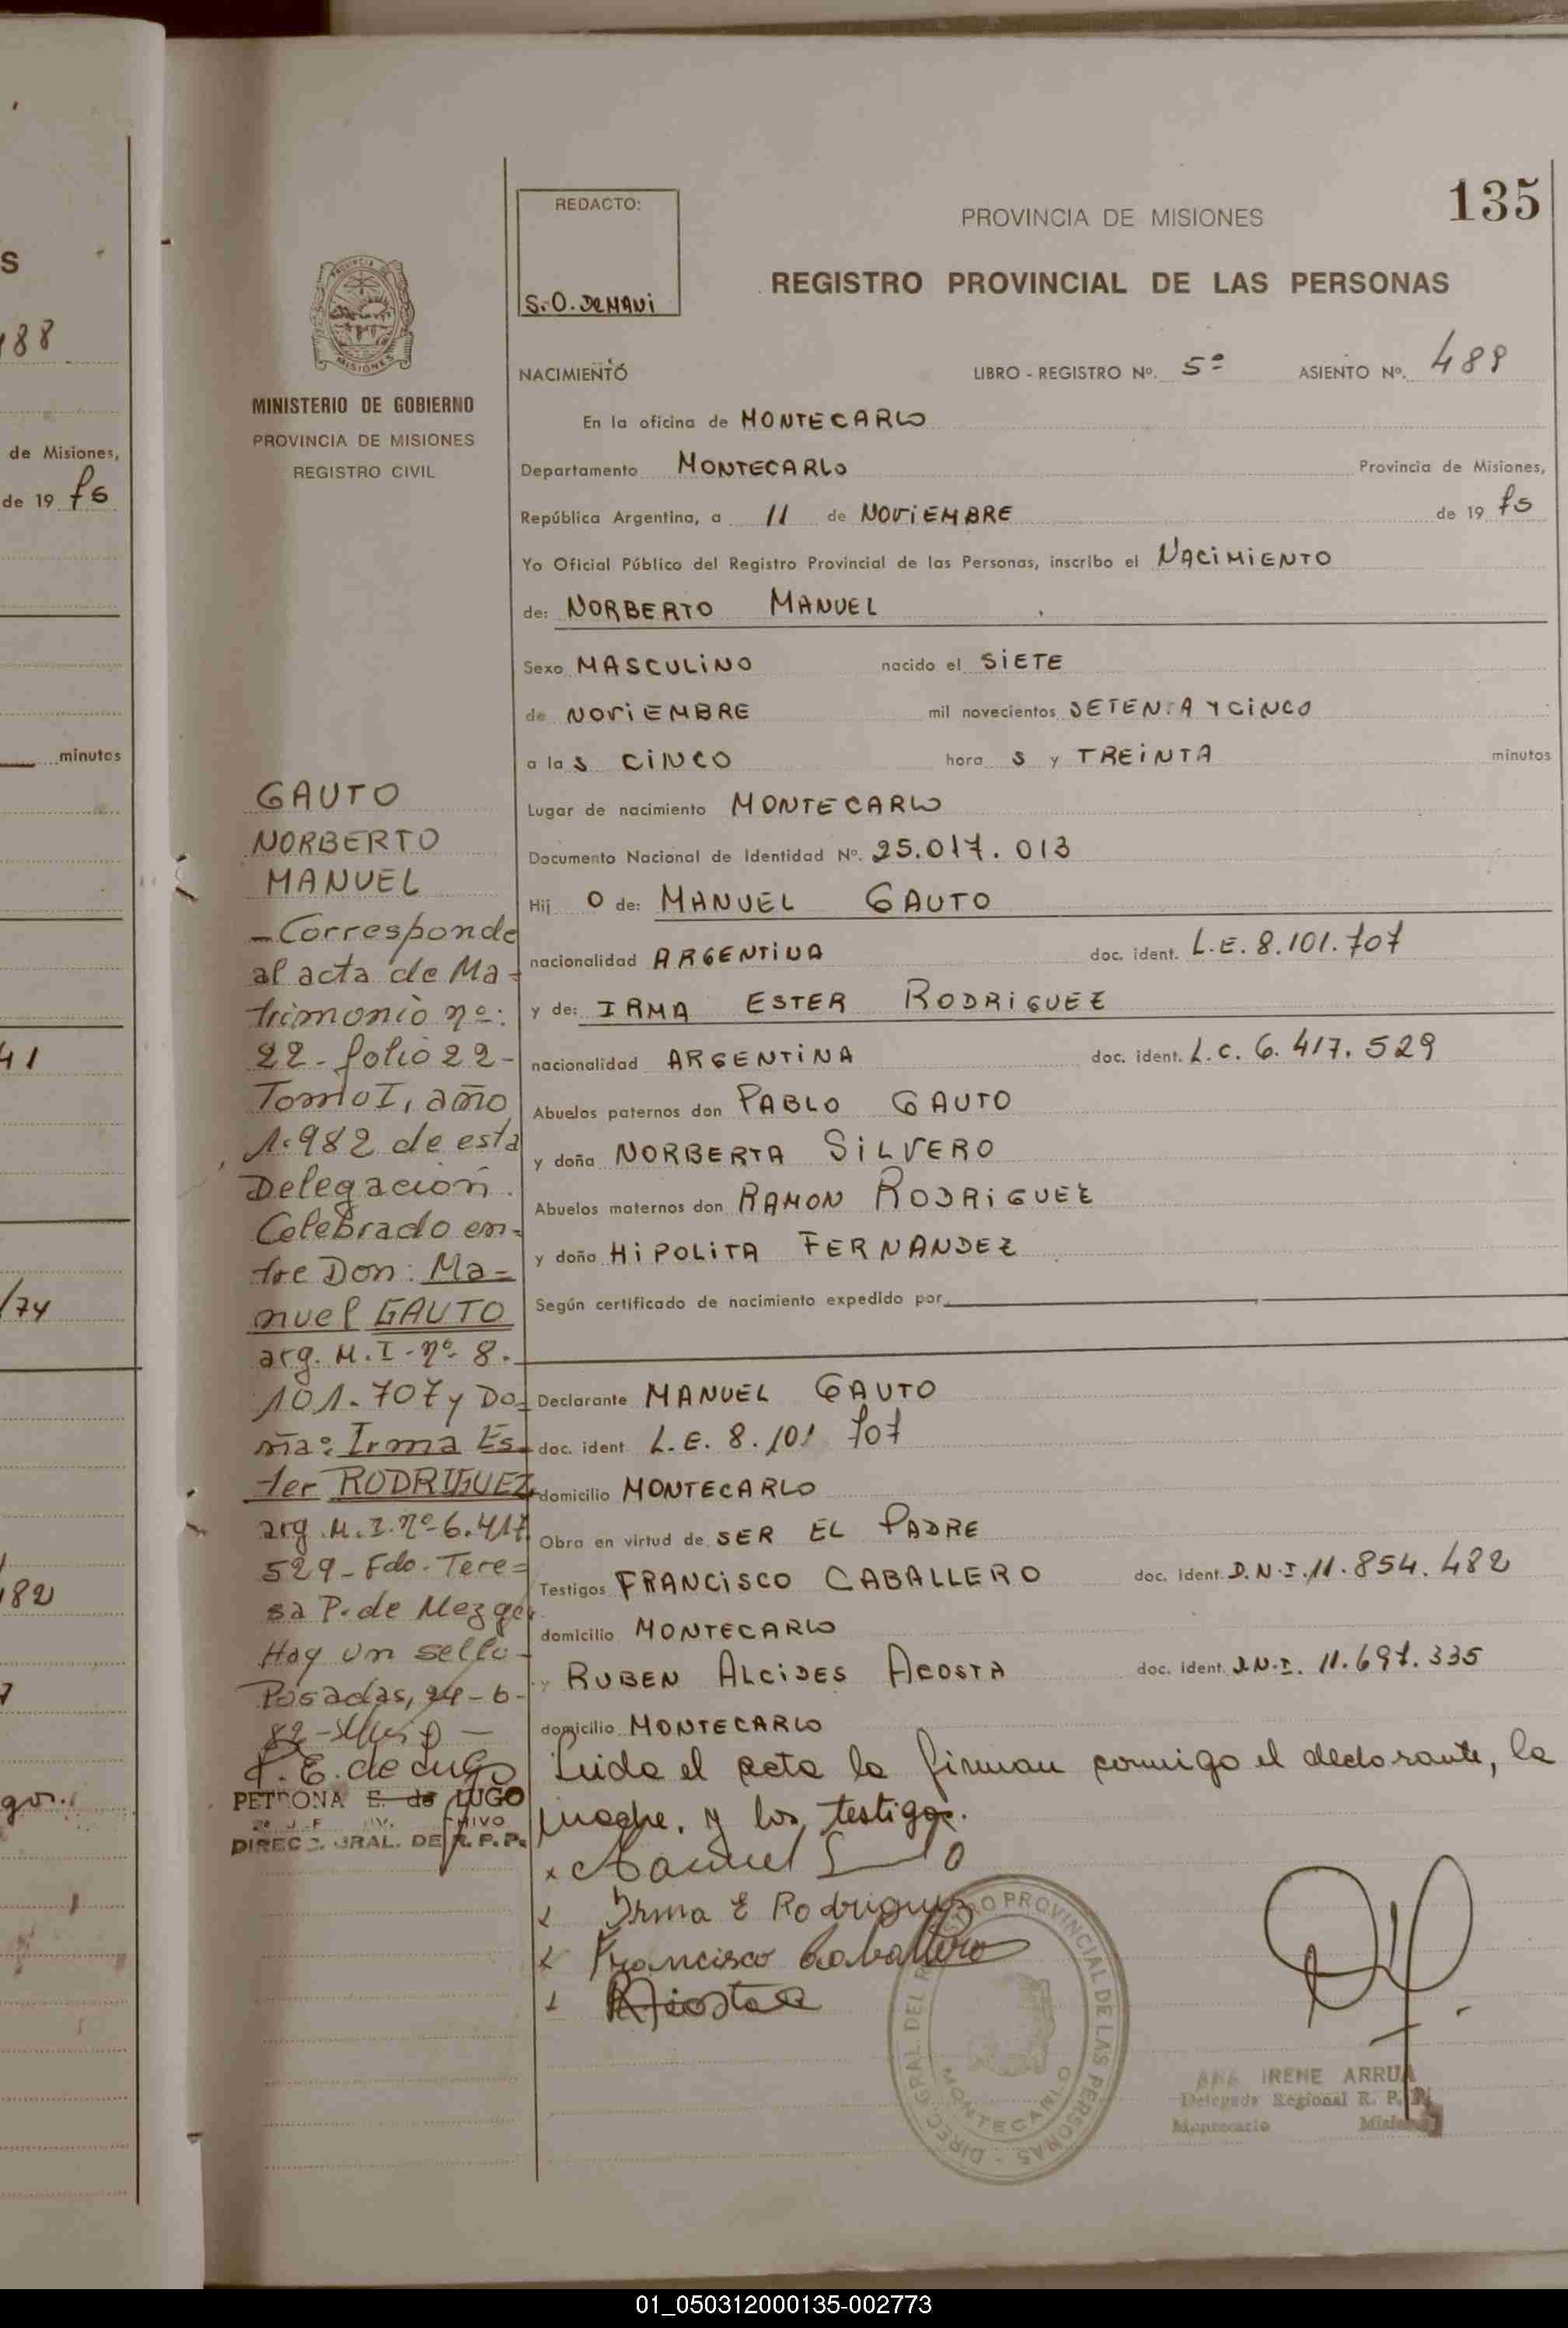 S
188
de Misiones,
de 19 75
minutos
41
/74
182
gos.
135
REDACTO:
S.O. DEMAVI
PROVINCIA DE MISIONES
REGISTRO PROVINCIAL DE LAS PERSONAS
PROVINCIA DE
MISIONES
MINISTERIO DE GOBIERNO
PROVINCIA DE MISIONES
REGISTRO CIVIL
NACIMIENTO LIBRO - REGISTRO Nº. 5º ASIENTO Nº. 489
En la oficina de MONTECARLO
Departamento MONTECARLO Provincia de Misiones,
República Argentina, a 11 de NOVIEMBRE de 19 75
Yo Oficial Público del Registro Provincial de las Personas, inscribo el NACIMIENTO
de: NORBERTO MANUEL
Sexo MASCULINO nacido el SIETE
de NOVIEMBRE mil novecientos SETENTA Y CINCO
a las CINCO horas y TREINTA minutos
Lugar de nacimiento MONTECARLO
Documento Nacional de Identidad Nº. 25.017.013
Hijo de: MANUEL GAUTO
nacionalidad ARGENTINA doc. ident. L.E. 8.101.707
y de: IRMA ESTER RODRIGUEZ
nacionalidad ARGENTINA doc. ident. L.C. 6.417.529
Abuelos paternos don PABLO GAUTO
y doña NORBERTA SILVERO
Abuelos maternos don RAMON RODRIGUEZ
y doña HIPOLITA FERNANDEZ
Según certificado de nacimiento expedido por
Declarante MANUEL GAUTO
doc. ident L.E. 8.101 707
domicilio MONTECARLO
Obra en virtud de SER EL PADRE
Testigos FRANCISCO CABALLERO doc. ident. D.N.I. 11.854.482
domicilio MONTECARLO
y RUBEN ALCIDES ACOSTA doc. ident. D.N.I. 11.697.335
domicilio MONTECARLO
Leida el acta la firman conmigo el declarante, la
madre, y los testigos.
x Manuel
x Irma E Rodriguez
x Francisco Caballero
x RAcosta
GAUTO
NORBERTO
MANUEL
-Corresponde
al acta de Ma-
trimonio nº:
22-folio 22-
Tomo I, año
1.982 de esta
Delegación.
Celebrado en-
tre Don: Ma-
nuel GAUTO
arg. M.I-nº 8.
101.707 y Do-
ña: Irma Es-
ter RODRIGUEZ
arg. M.I. nº-6.417
529-Fdo. Tere=
sa P. de Mezger
Hay un sello-
Posadas, 24-6-
82-
P.E. de Lugo
PETRONA E. de LUGO
DIREC. GRAL. DE R.P.P.
DIREC. GRAL. DEL REGISTRO PROVINCIAL DE LAS PERSONAS -
MONTECARLO
ANA IRENE ARRUA
Delegada Regional R. P. P.
Montecarlo Misiones
01_050312000135-002773